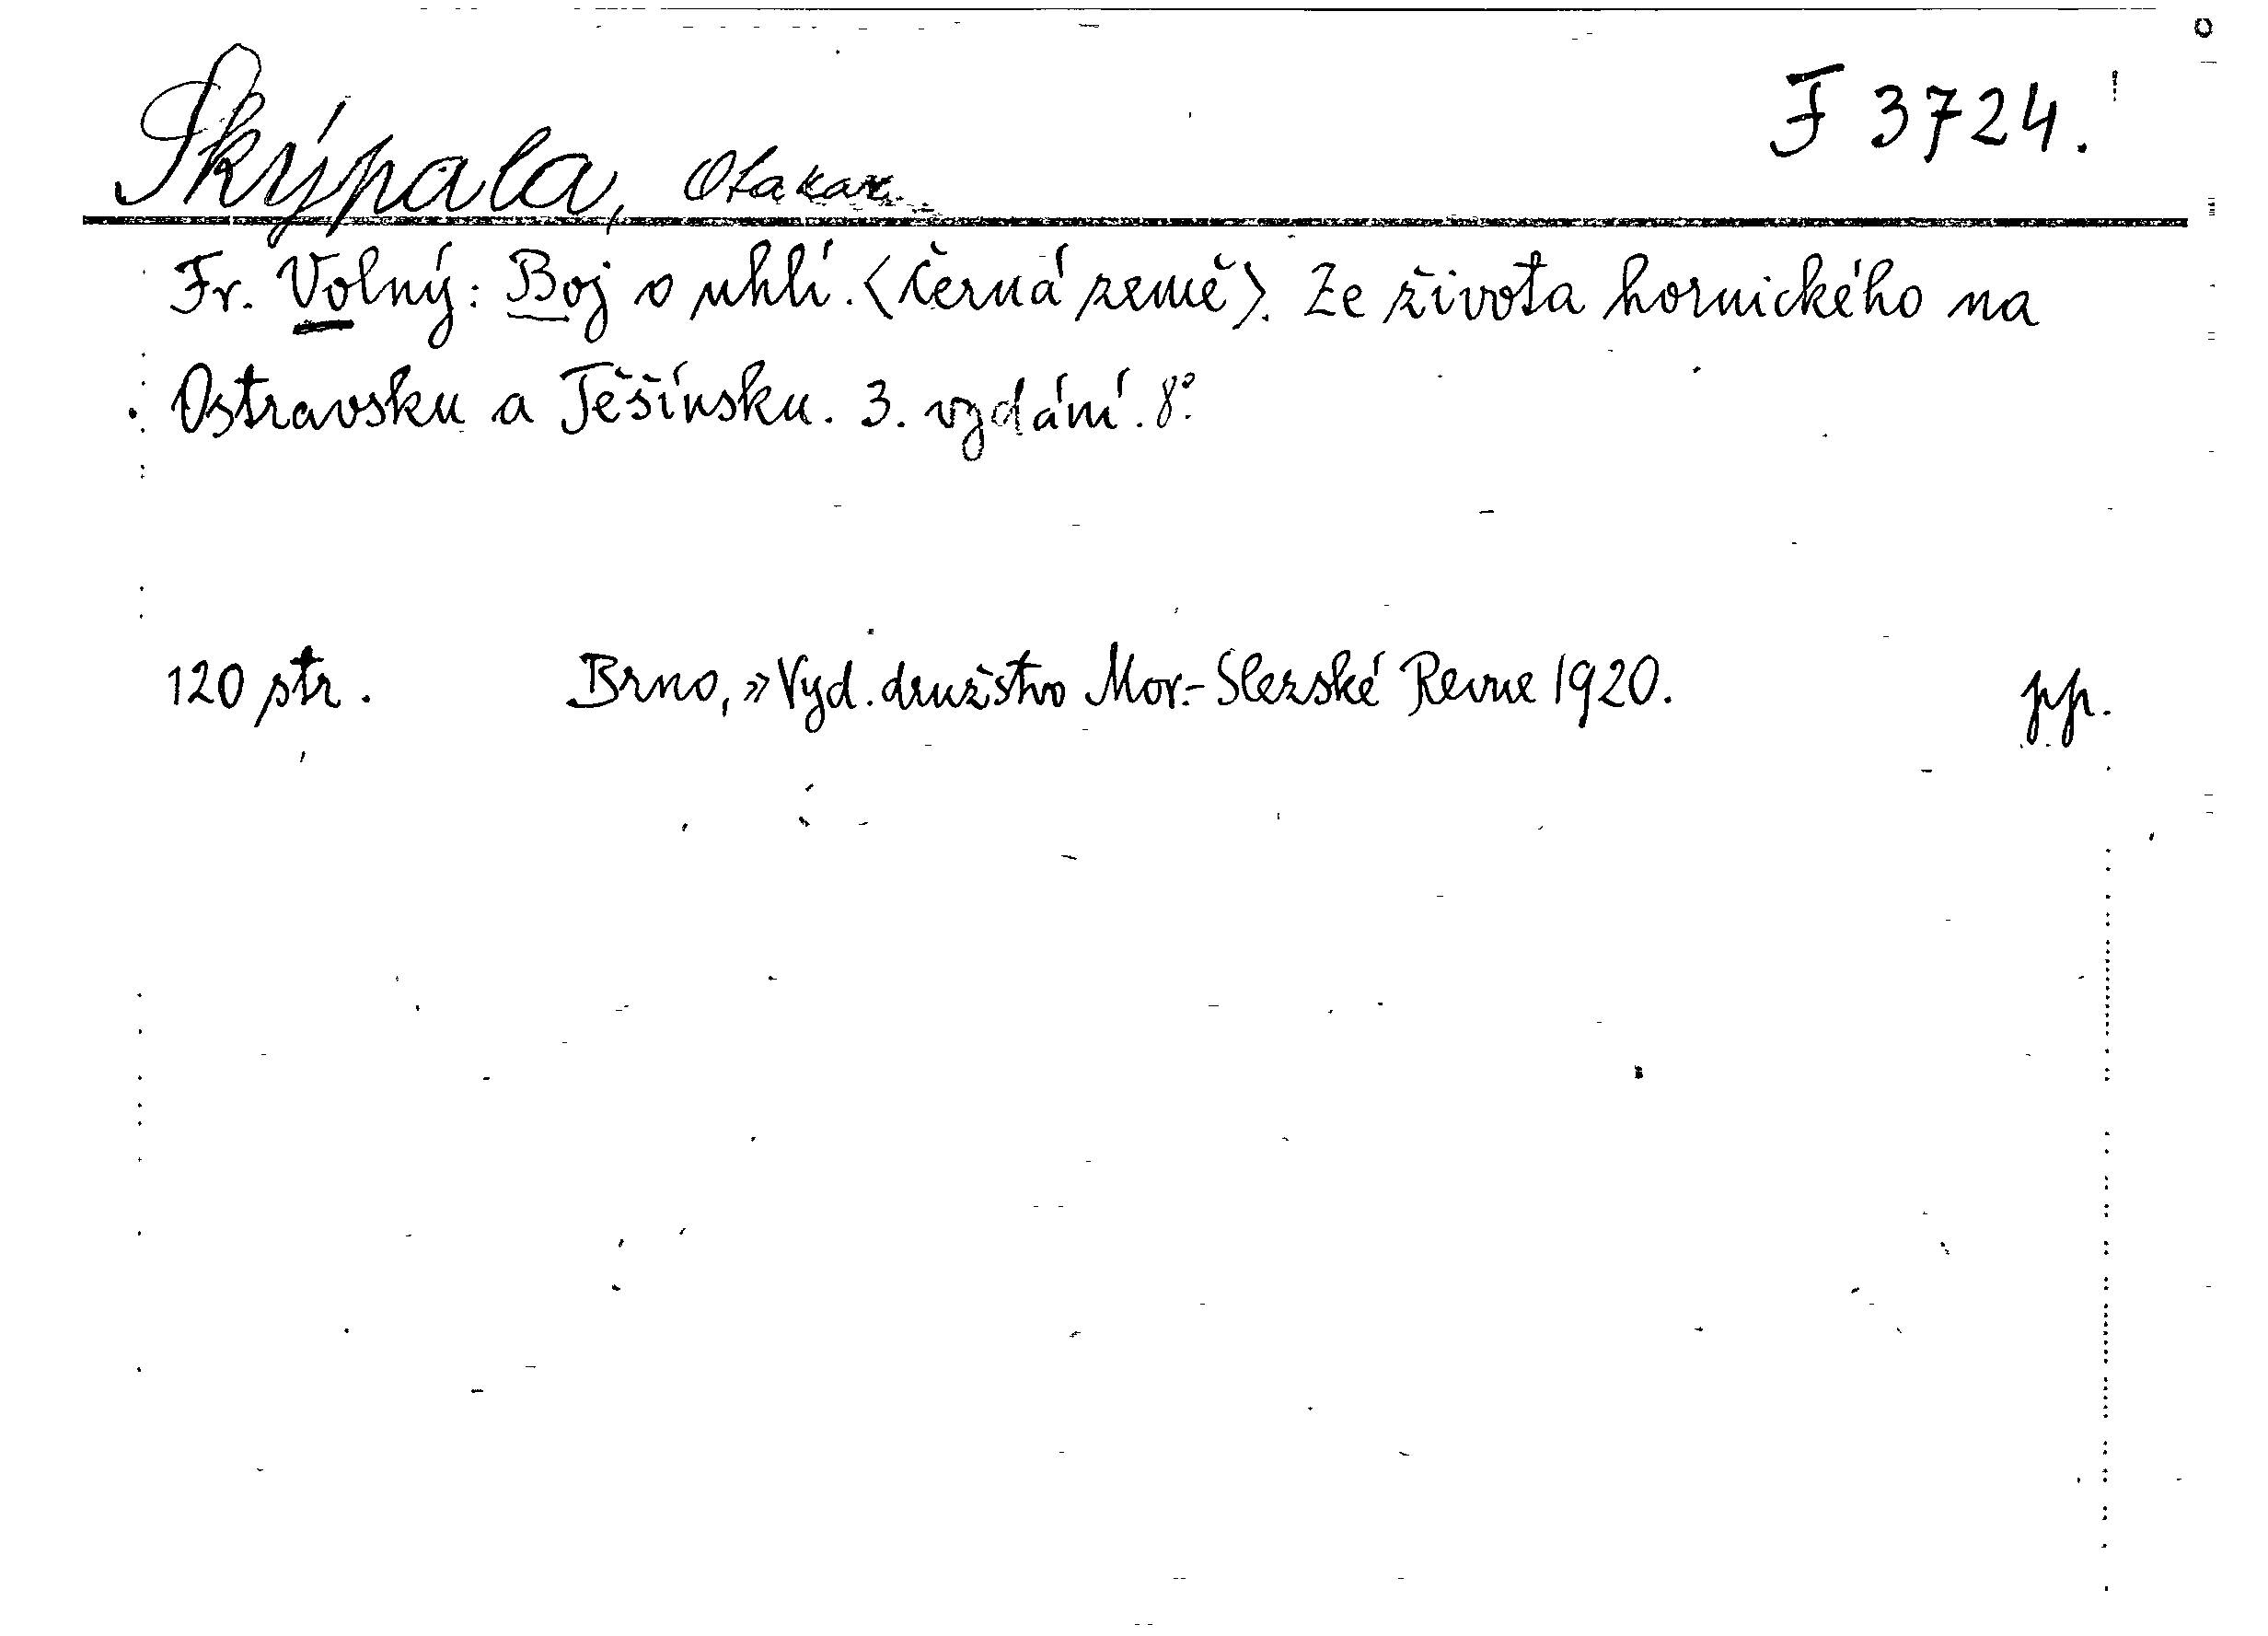 F 3724.
Skýpala, Otakar.
Fr. Volný: Boj o uhlí. (Černá země). Ze života hornického na
Ostravsku a Těšínsku. 3. vydání. 8°.
120 str. Brno, » Vyd. družstvo Mor.-Slezské Revue 1920. pp.